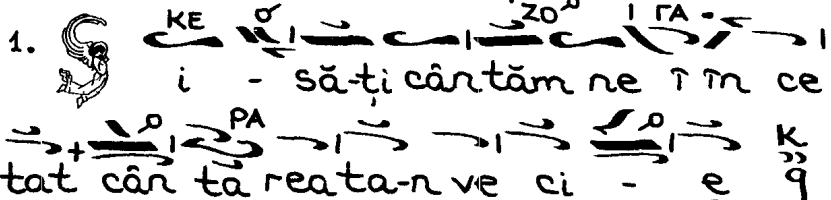 KE ZO ΓΑ
1. S i - să-ți cântăm ne î în ce
PA K
tat cân ta rea ta-n ve ci - e q